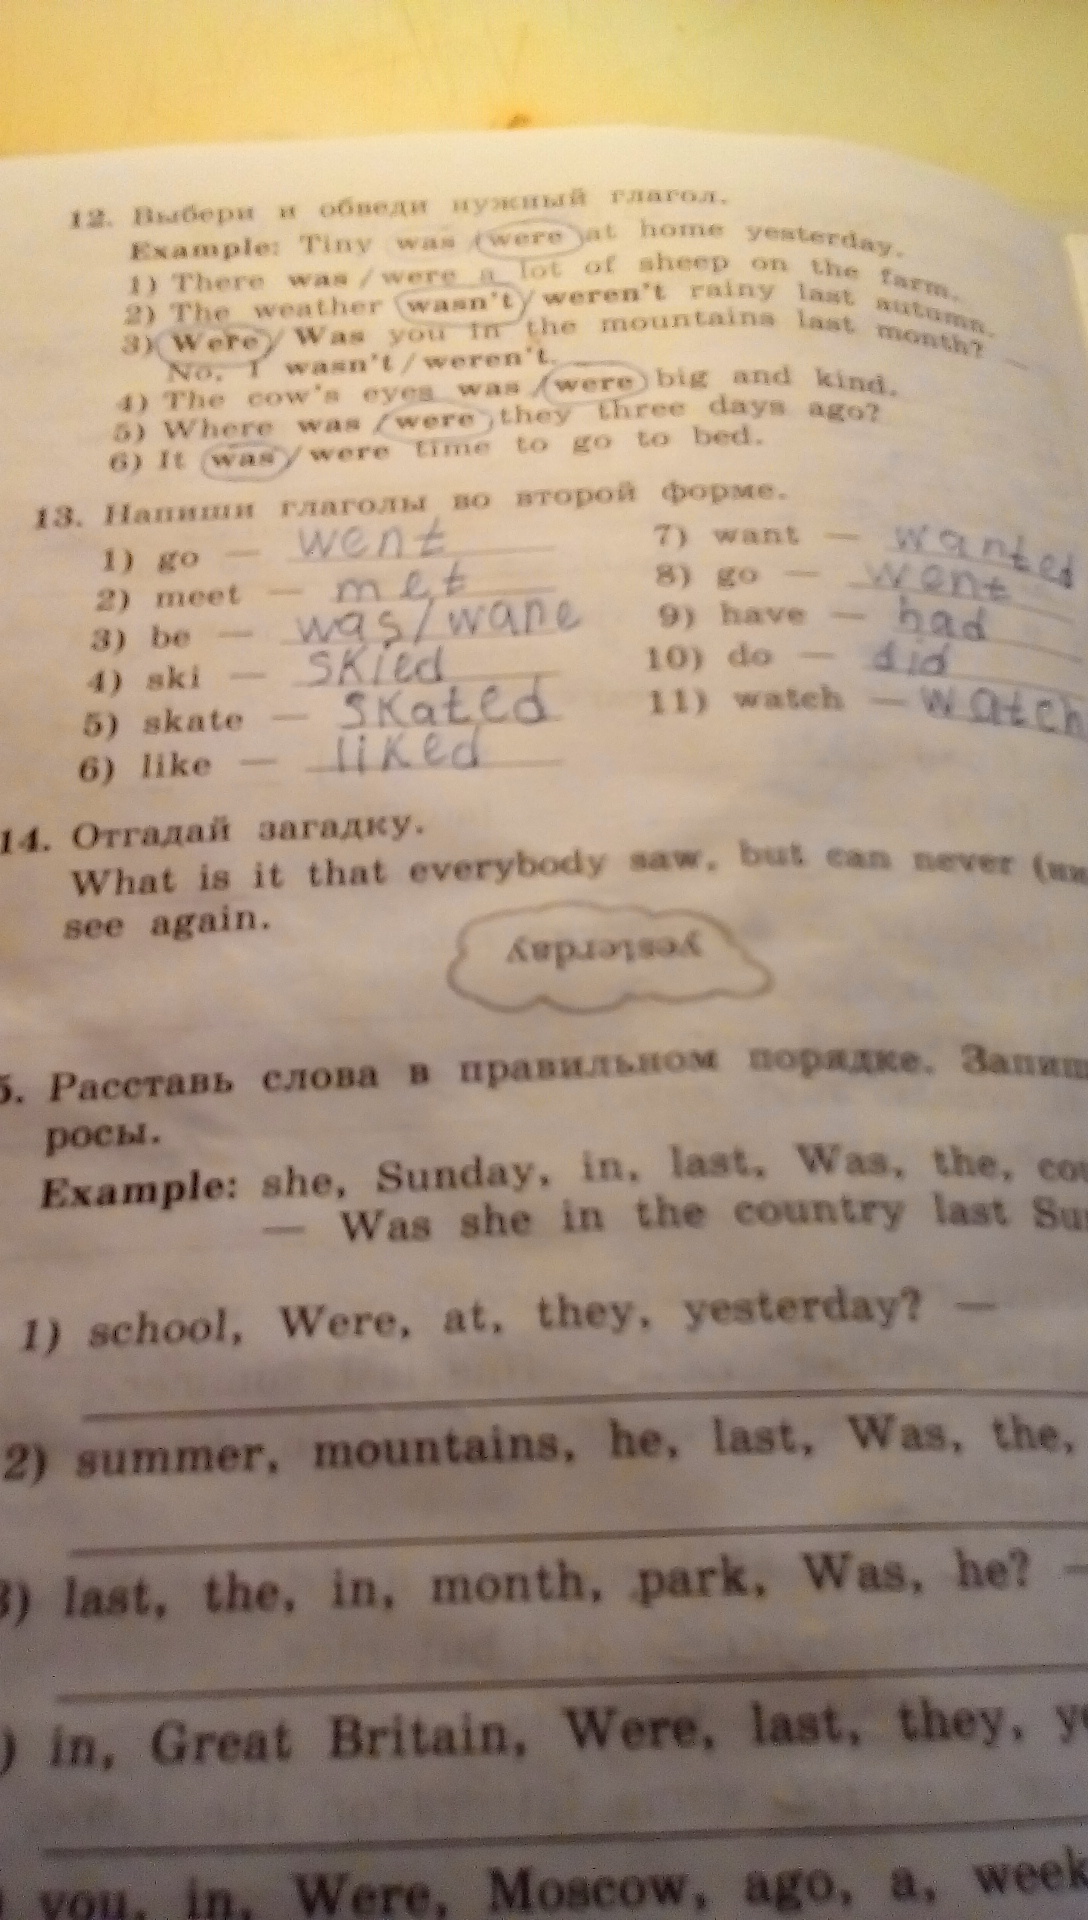 12. Выбери и обведи нужный глагол.
Example: Tiny was / were at home yesterday.
1) There was / were a lot of sheep on the farm.
2) The weather wasn't / weren't rainy last autumn.
3) Were / Was you in the mountains last month? —
No, I wasn't / weren't.
4) The cow's eyes was / were big and kind.
5) Where was / were they three days ago?
6) It was / were time to go to bed.
13. Напиши глаголы во второй форме.
1) go — went
2) meet — met
3) be — was/wane
4) ski — skied
5) skate — skated
6) like — liked
7) want — wanted
8) go — went
9) have — had
10) do — did
11) watch — watch
14. Отгадай загадку.
What is it that everybody saw, but can never (ни
see again.
yesterday
5. Расставь слова в правильном порядке. Запиш
росы.
Example: she, Sunday, in, last, Was, the, cou
— Was she in the country last Su
1) school, Were, at, they, yesterday? —
2) summer, mountains, he, last, Was, the,
3) last, the, in, month, park, Was, he? —
) in, Great Britain, Were, last, they, ye
) you, in, Were, Moscow, ago, a, week